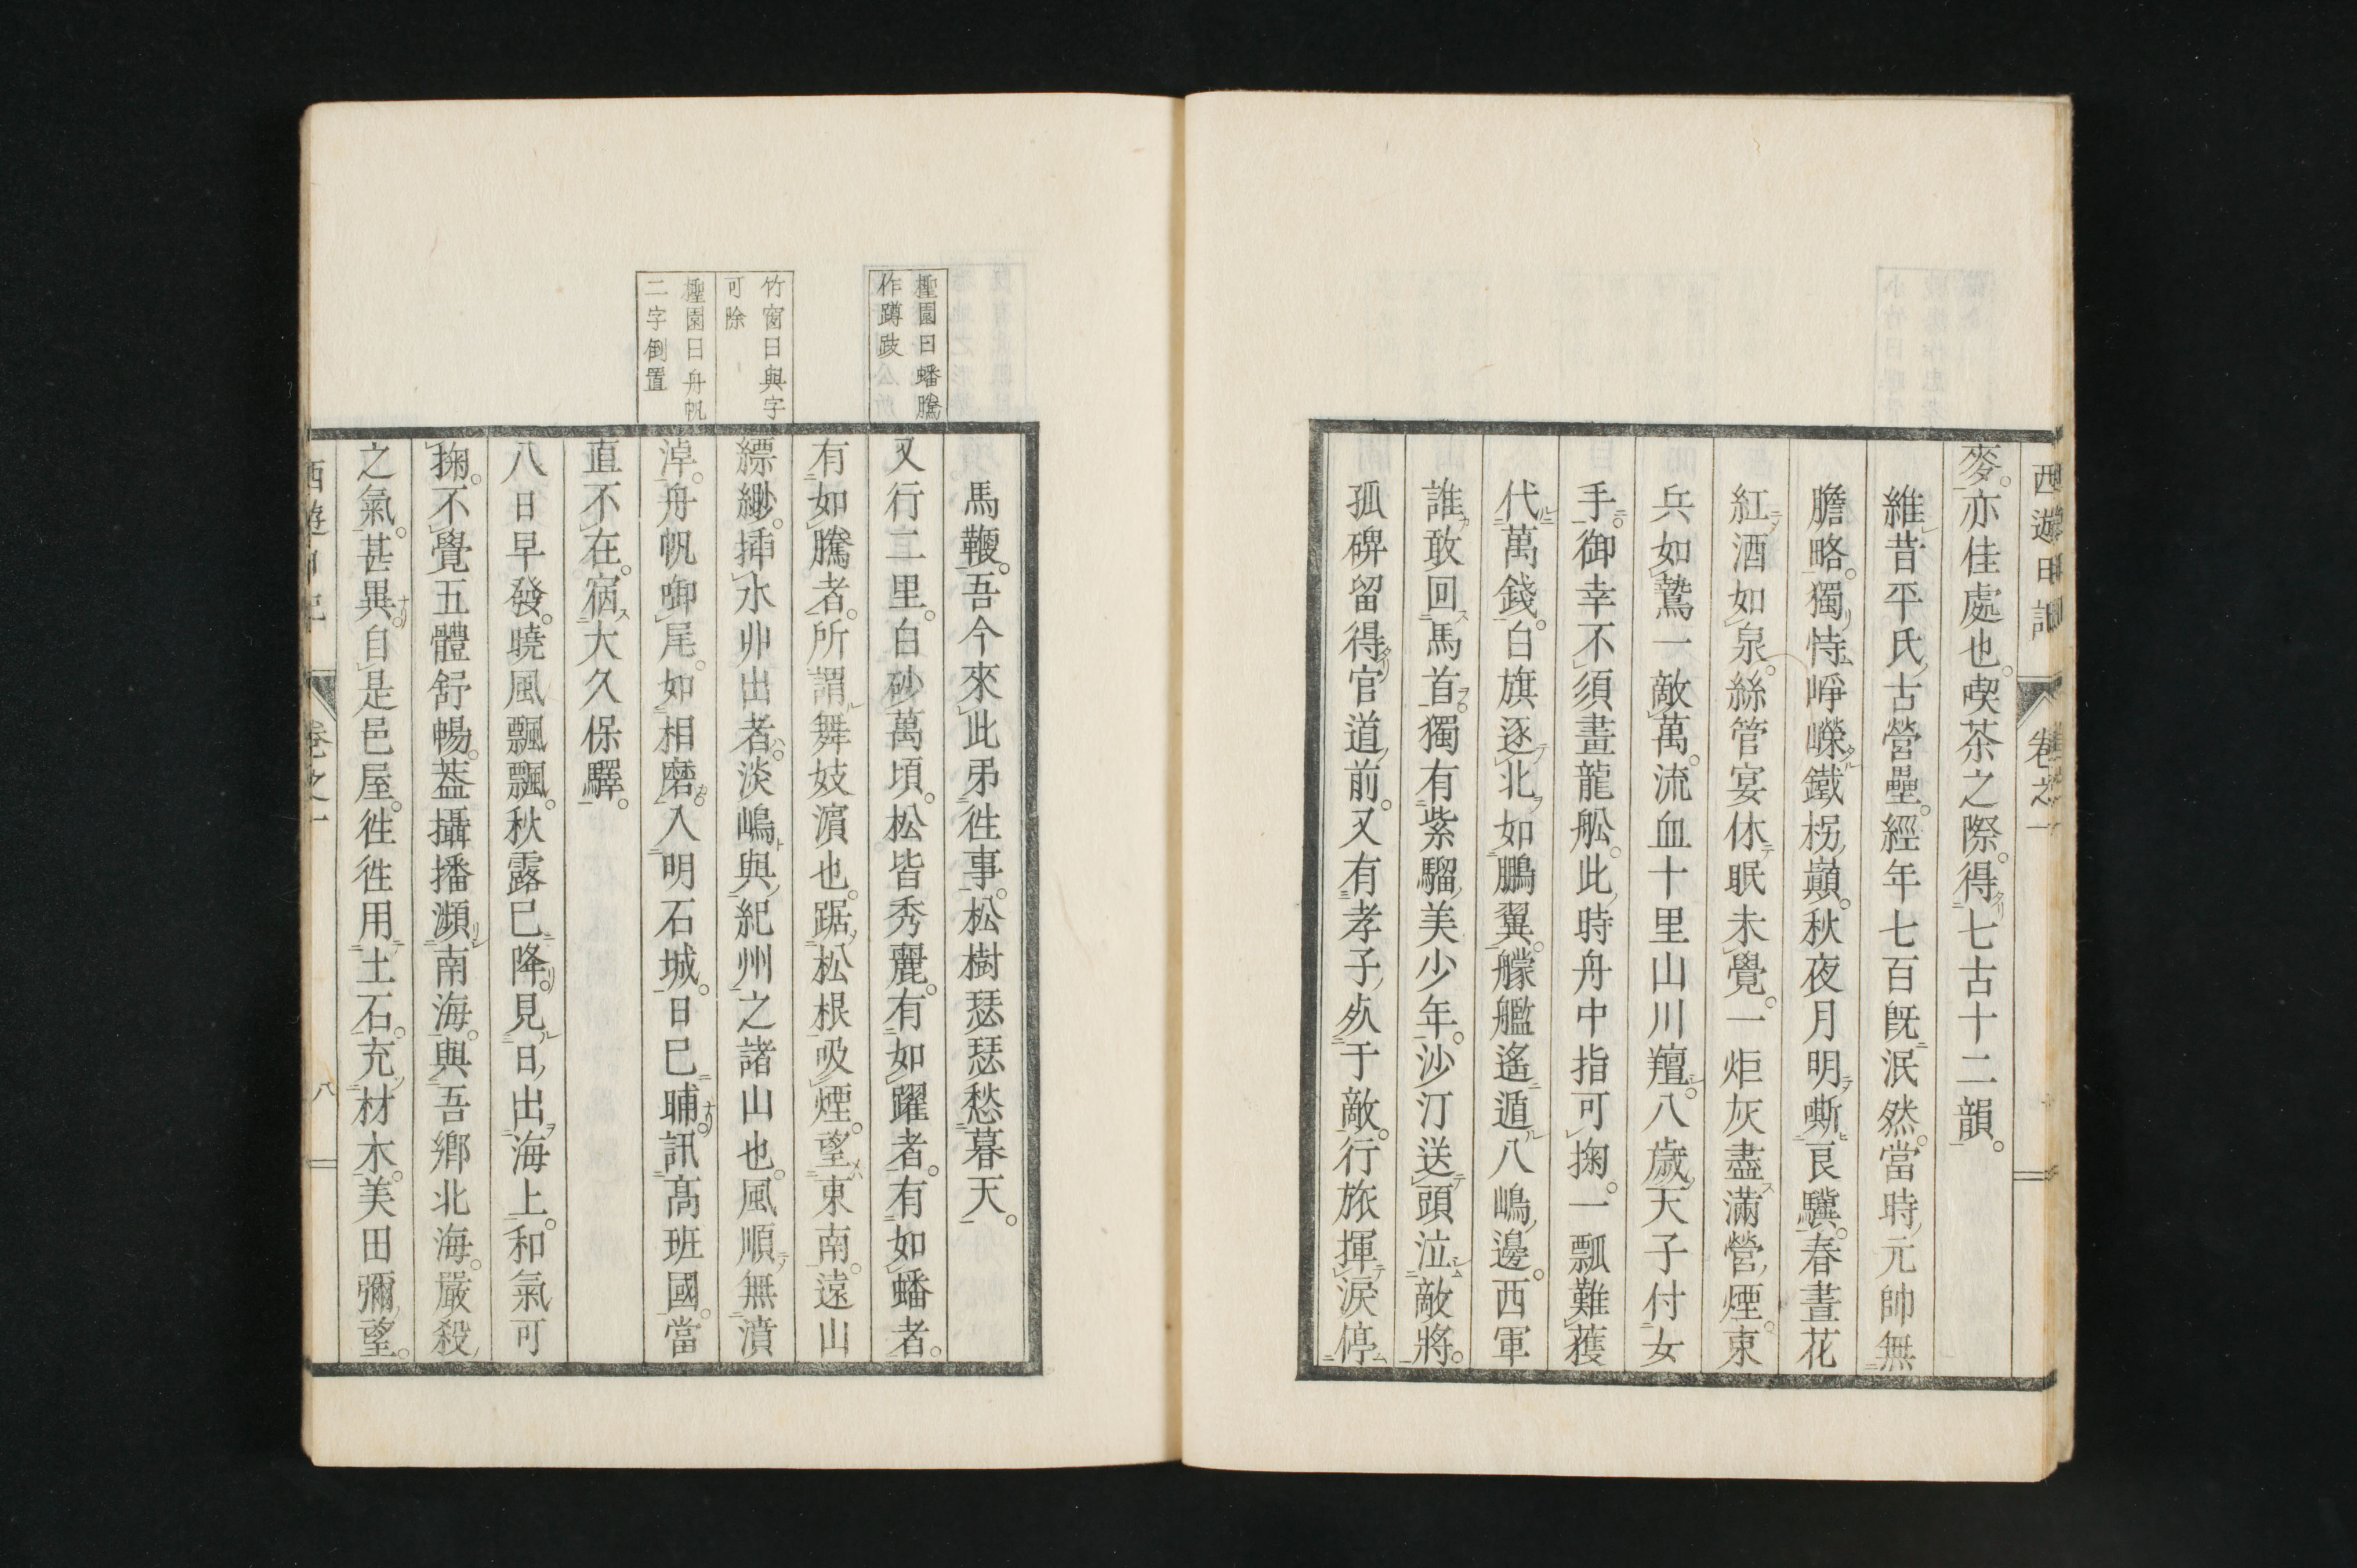 西遊日記 卷之一
麥。亦佳處也。喫茶之際。得七古十二韻。
維昔平氏古營壘。經年七百既泯然。當時元帥無
膽略。獨恃崢嶸鐵枴巓。秋夜月明嘶良驥。春晝花
紅酒如泉。絲管宴休眠未覺。一炬灰盡滿營煙。東
兵如鷙一敵萬。流血十里山川羶。八歲天子付女
手。御幸不須畫龍舩。此時舟中指可掬。一瓢難獲
代萬錢。白旗逐北如鵬翼。艨艦遙遁八嶋邊。西軍
誰敢回馬首。獨有紫騮美少年。沙汀送頭泣敵將。
孤碑留得官道前。又有孝子死于敵。行旅揮淚停
馬鞭。吾今來此弔徃事。松樹瑟瑟愁暮天。
又行二里。白砂萬頃。松皆秀麗。有如躍者。有如蟠者。
有如騰者。所謂舞妓濵也。踞松根吸煙。望東南。遠山
縹緲。揷水丱出者。淡嶋與紀州之諸山也。風順無濆
淖。舟帆啣尾。如相磨。入明石城。日已晡。訊髙班國。當
直不在。宿大久保驛。
八日早發。曉風飄飄。秋露已降。見日出海上。和氣可
掬。不覺五體舒暢。葢攝播瀕南海。與吾鄉北海。嚴殺
之氣。甚異。自是邑屋。徃徃用土石。充材木。美田彌望。
檉園曰蟠騰
作蹲跂
竹窗曰與字
可除
檉園曰舟帆
二字倒置
西遊日記 卷之一 八